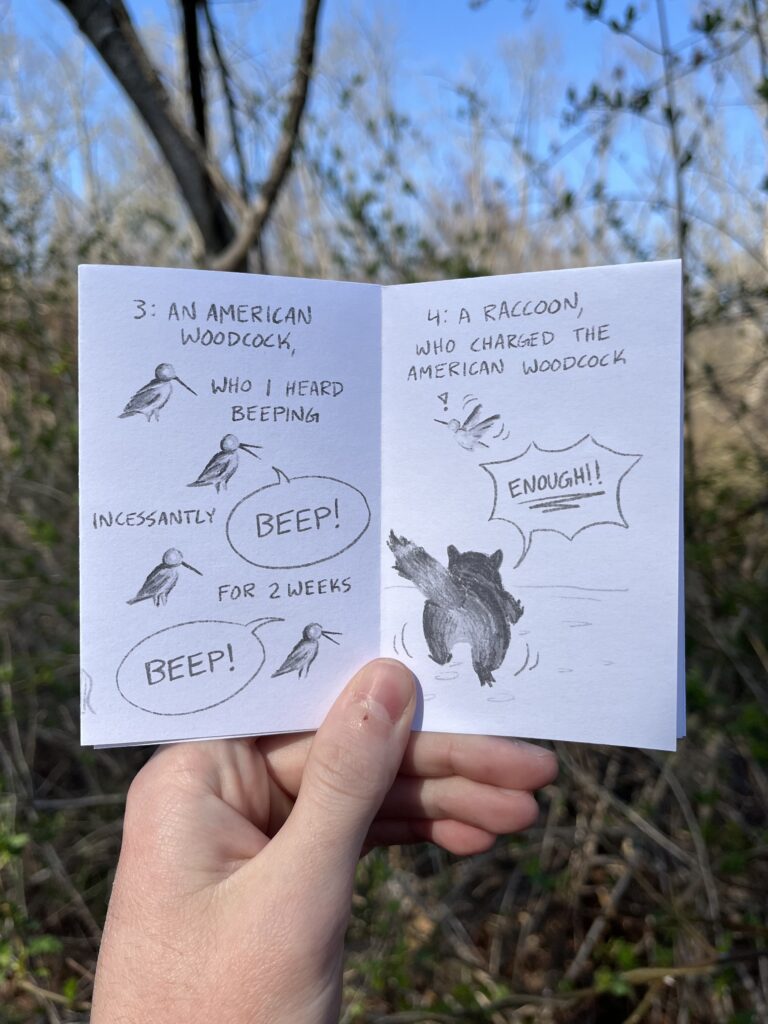 3: AN AMERICAN
WOODCOCK,
WHO I HEARD
BEEPING
INCESSANTLY
BEEP!
FOR 2 WEEKS
BEEP!
4: A RACCOON,
WHO CHARGED THE
AMERICAN WOODCOCK
!
ENOUGH!!